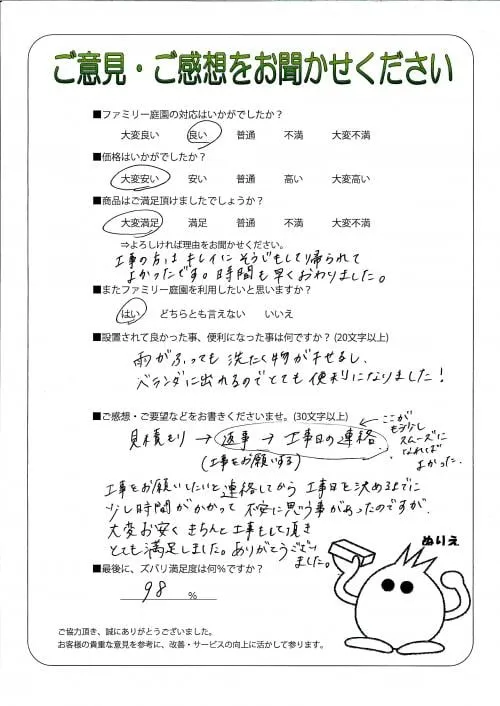 ご意見・ご感想をお聞かせください
■ファミリー庭園の対応はいかがでしたか？
大変良い 良い 普通 不満 大変不満
■価格はいかがでしたか？
大変安い 安い 普通 高い 大変高い
■商品はご満足頂けましたでしょうか？
大変満足 満足 普通 不満 大変不満
⇒よろしければ理由をお聞かせください。
工事の方は キレイに そうじもして帰られて
よかったです。時間も早くおわりました。
■またファミリー庭園を利用したいと思いますか？
はい どちらとも言えない いいえ
■設置されて良かった事、便利になった事は何ですか？(20文字以上)
雨がふっても 洗たく物が干せるし、
ベランダに出れるのでとても便利になりました！
■ご感想・ご要望などをお書きくださいませ。(30文字以上)
見積もり → 返事 → 工事日の連絡
(工事をお願いする)
ここが
もう少し
スムーズに
なれば
よかった。
工事をお願いしたいと連絡してから 工事日を決めるまでに
少し時間がかかって 不安に思う事があったのですが、
大変お安く きちんと工事もして頂き
とても満足しました。ありがとうござい
ました。
■最後に、ズバリ満足度は何％ですか？
98 ％
ぬりえ
ご協力頂き、誠にありがとうございました。
お客様の貴重な意見を参考に、改善・サービスの向上に活かして参ります。